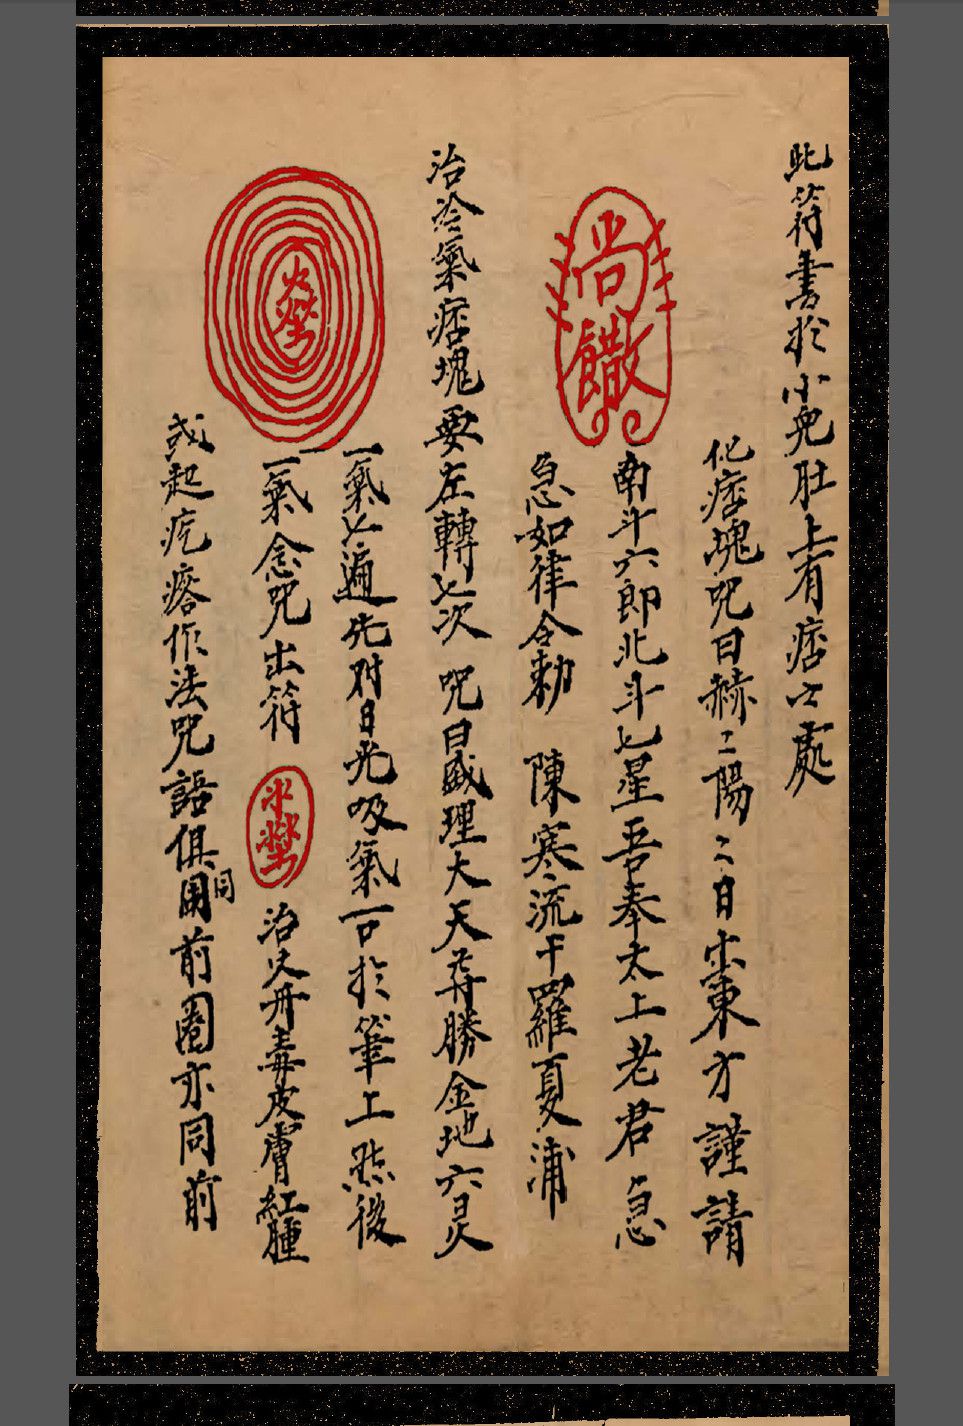 此符書於小兒肚上有痞之處
化痞塊咒曰赫二陽二日出東方謹請
南斗六郎北斗七星吾奉太上老君急
急如律令勅　陳寒流干羅夏浦
尚
治冷氣痞塊要左轉七次　咒曰盛理大天尊勝金地六灵
一氣七遍先对日光吸氣一口於筆上然後
一氣念咒出符　治火丹毒皮膚紅腫
或起疙瘩作法咒語俱用同前圈亦同前